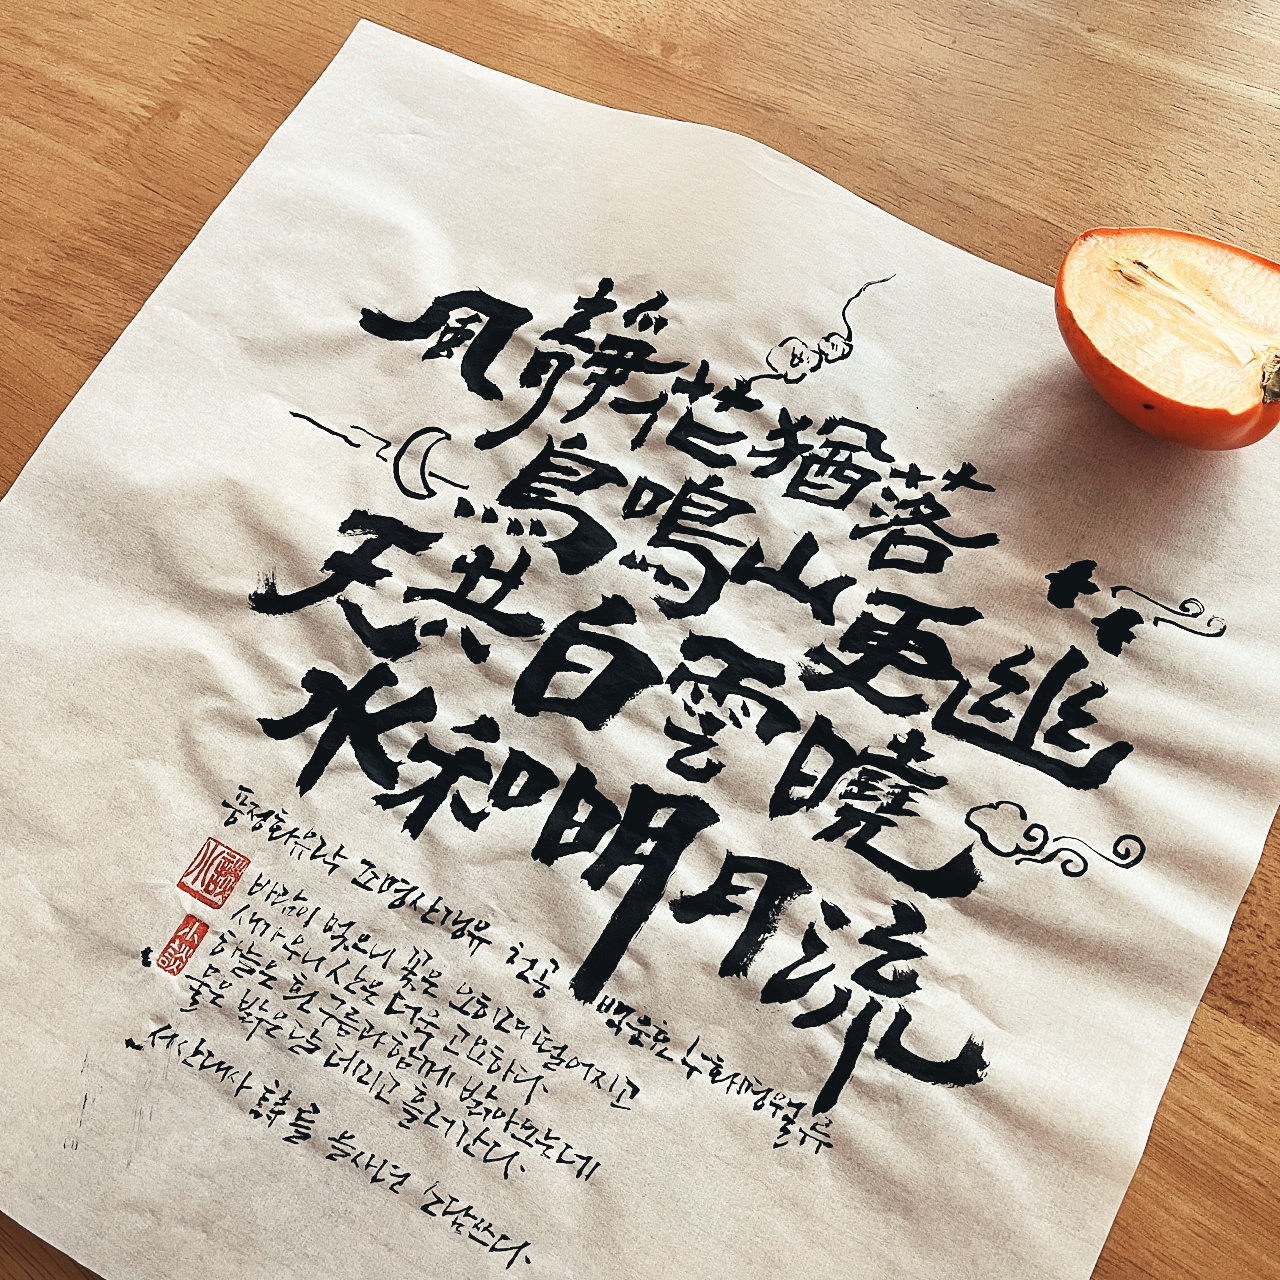 風靜花猶落
鳥鳴山更幽
天共白雲曉
水和明月流
풍정화유락 조명산갱유 천공 백운효 수화명월류
바람이 멎으니 꽃은 오히려 떨어지고
새가 우니 산은 더욱 고요하다.
하늘은 흰 구름과 함께 밝아오는데
물은 밝은달 데리고 흘러간다.
서산대사 詩를 을사년 소담쓰다.
小談